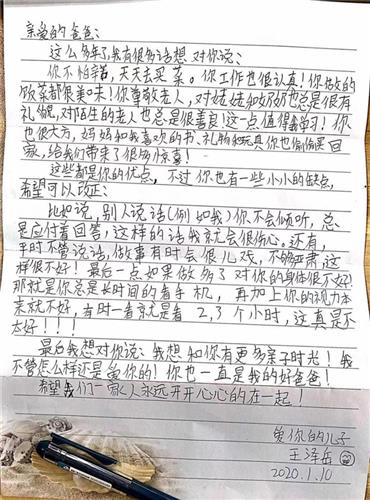 亲爱的爸爸:
这么多年了,我有很多话想对你说:
你不怕辛苦,天天去买菜。你工作也很认真!你做的
饭菜都很美味!你尊敬老人,对姥姥和奶奶也总是很有
礼貌,对陌生的老人也总是很善良!这一点值得我学习!你
也很大方,妈妈和我喜欢的书、礼物和玩具你也偷偷买回
家,给我们带来了很多惊喜!
这些都是你的优点,不过你也有一些小小的缺点,
希望可以改正:
比如说,别人说话(例如我)你不会倾听,总
是应付着回答,这样的话我就会很伤心。还有,
平时不管说话、做故事有时会很儿戏,不够严肃这
样很不好!最后一点如果做多了对你的身体很不好!
那就是你总是长时间的看手机,再加上你的视力本
来就不好,有时一看就是看2,3个小时,这真是不
太好!!!
最后我想对你说:我想和你有更多亲子时光!我
不管怎么样还是爱你的!你也一直是我的好爸爸!
希望我们一家人永远开开心心的在一起!
爱你的儿子
王泽岳
2020.1.10